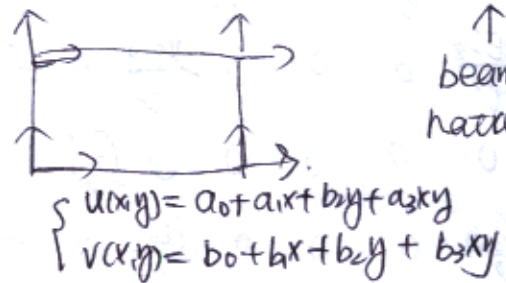 bean
u(x,y)= a₀+a₁x+b₂y+a₃xy
v(x,y)= b₀+b₁x+b₂y+ b₃xy